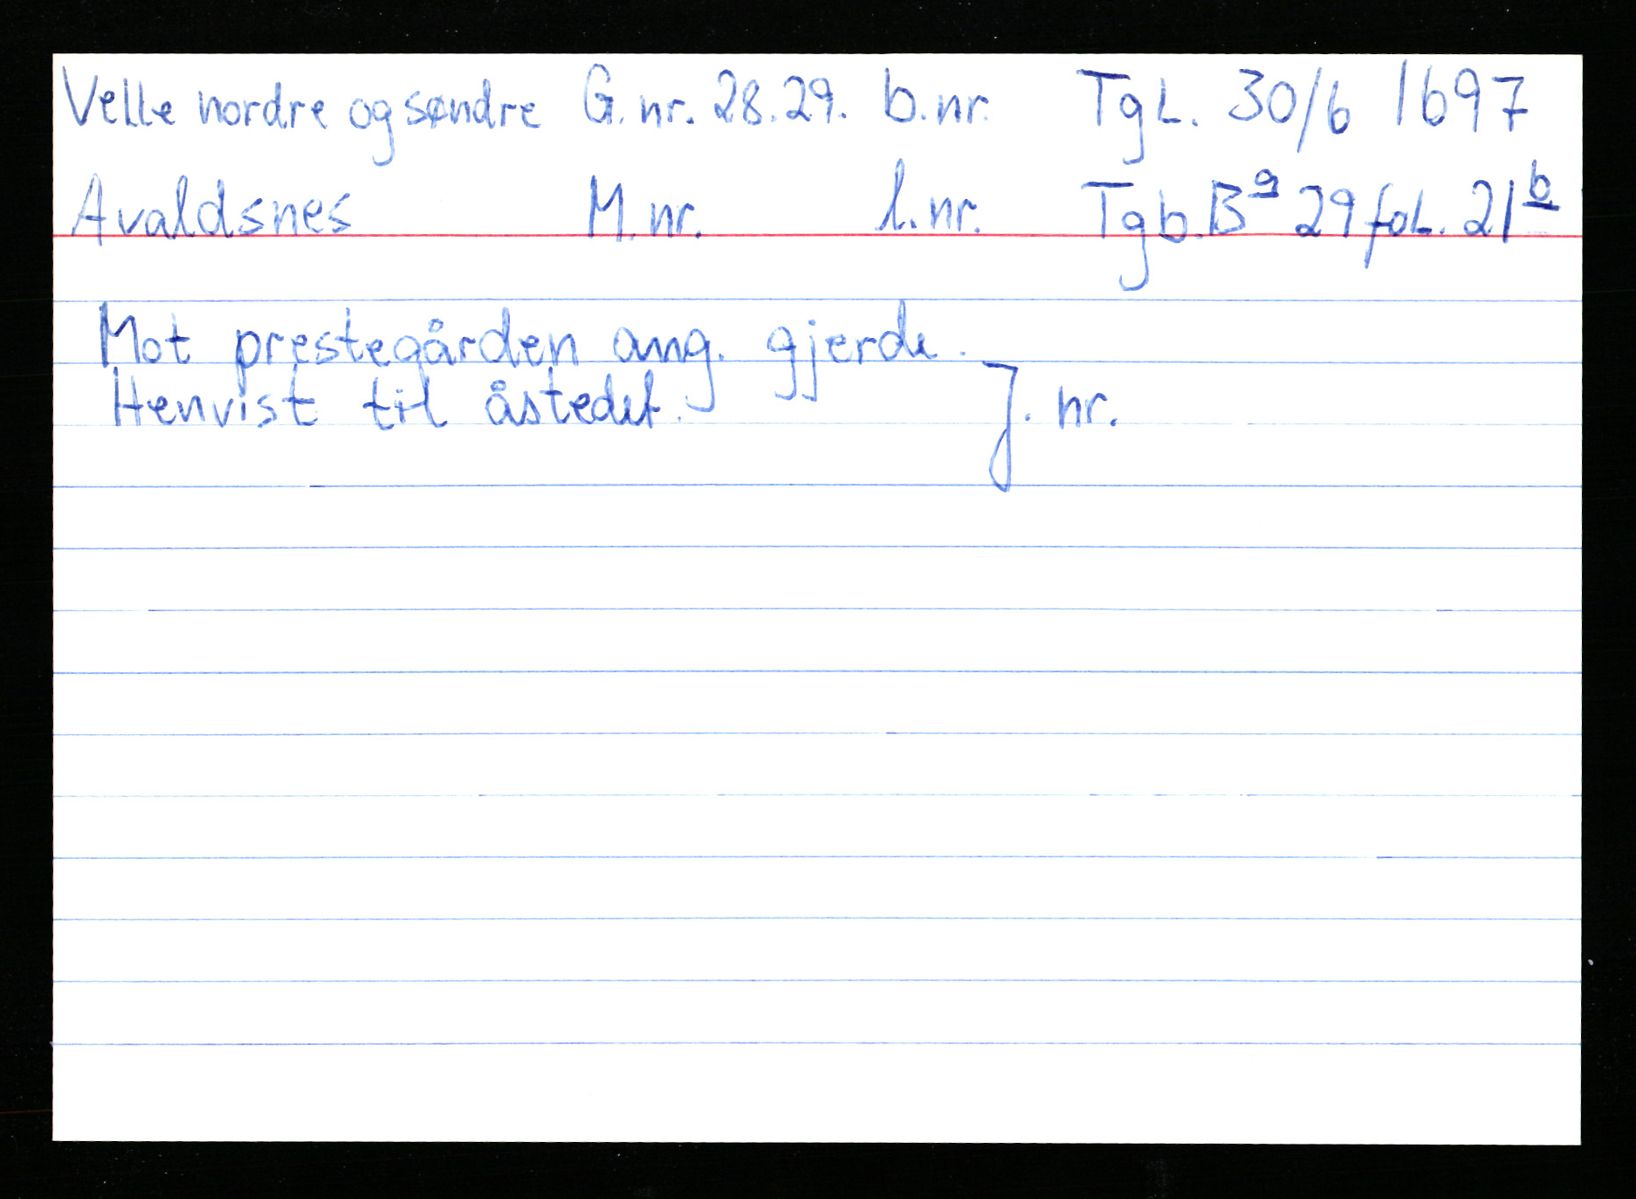 Velle nordre og søndre G. nr. 28. 29. b. nr. TgL. 30/6 1697
Avaldsnes M. nr. l. nr. Tgb. Bª 29 fol. 21b
Mot prestegården ang. gjerde.
Henvist til åstedet. J. nr.